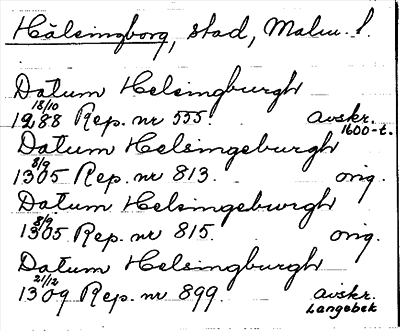 Hälsingborg, stad, Malm. l.
Datum Helsingburgh
18/10
1288 Rep. nr 555. avskr.
1600-t.
Datum Helsingeburgh
8/9
1305 Rep. nr 813. orig.
Datum Helsingeburgh
8/9
1305 Rep. nr 815. orig.
Datum Helsingburgh
21/12
1309 Rep. nr 899. avskr.
Langebek